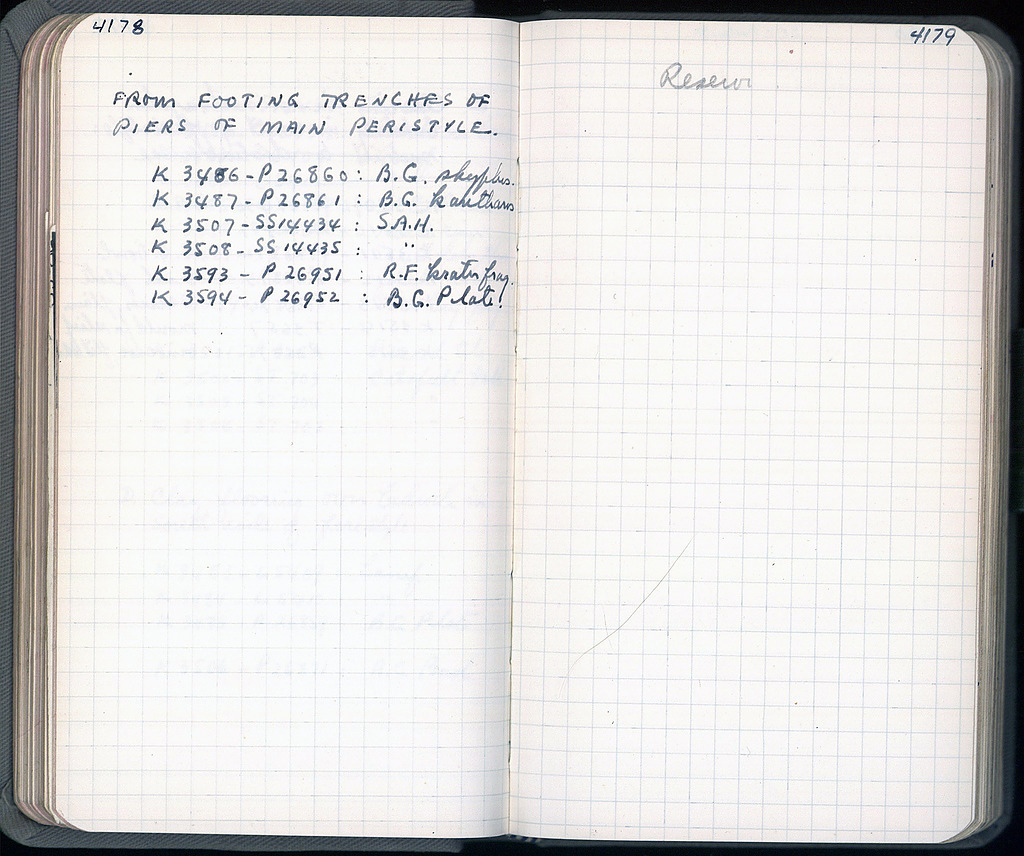 4178
FROM FOOTING TRENCHES OF
PIERS OF MAIN PERISTYLE.
K 3486 - P 26860 : B.G. skyphos.
K 3487 - P 26861 : B.G. kantharos
K 3507 - SS 14434 : S.A.H.
K 3508 - SS 14435 : "
K 3593 - P 26951 : R.F. krater frag.
K 3594 - P 26952 : B.G. Plate.
4179